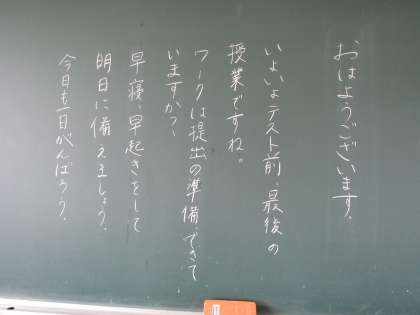 おはようございます。
いよいよテスト前、最後の
授業ですね。
ワークは提出の準備、できて
いますか?
早寝、早起きをして
明日に備えましょう。
今日も一日がんばろう。